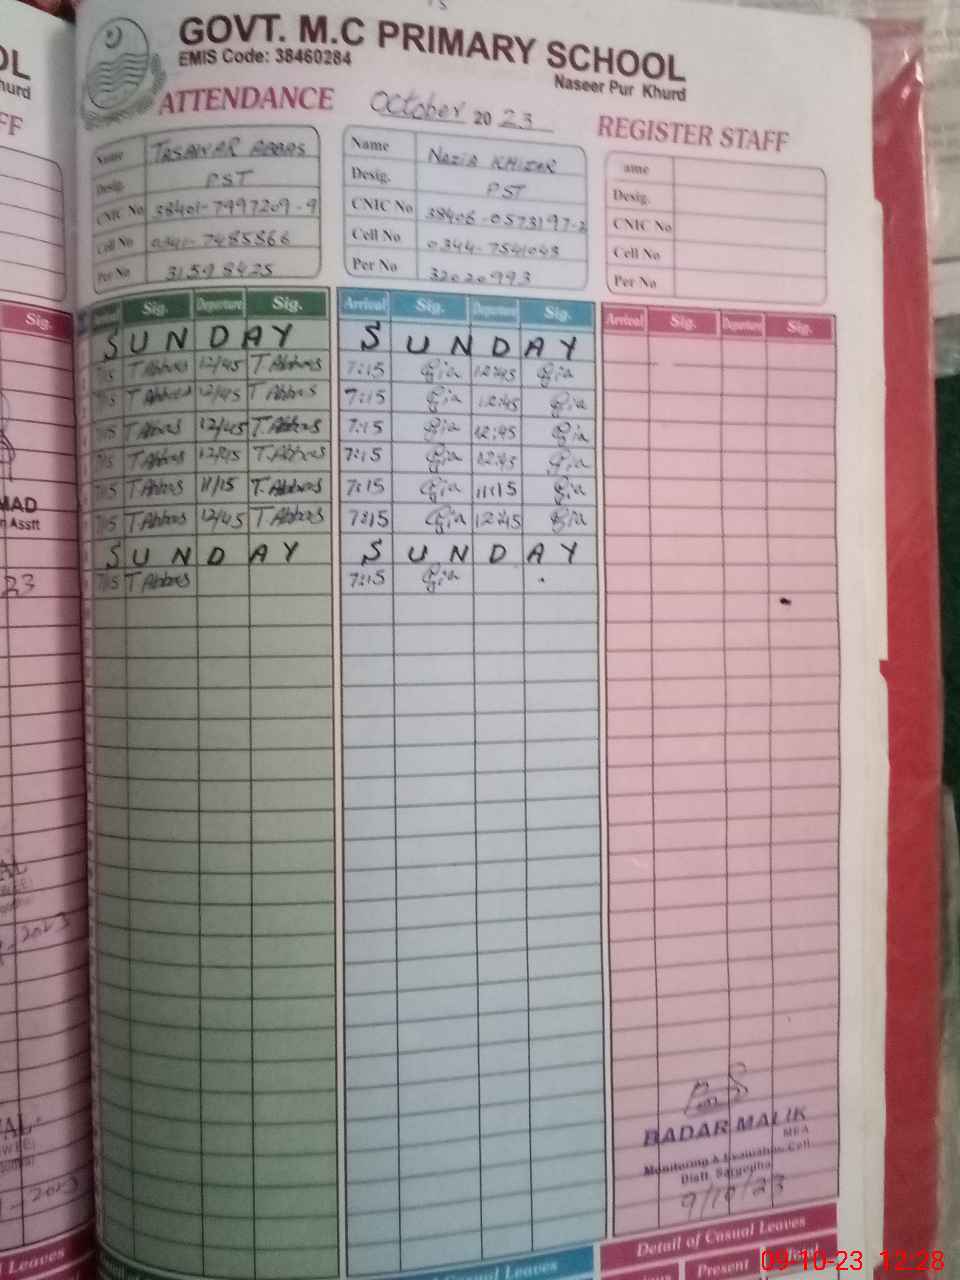 GOVT. M.C PRIMARY SCHOOL
EMIS Code: 38460284
Naseer Pur Khurd
ATTENDANCE October 2023 REGISTER STAFF
Name TASAWAR ABBAS
Desig. PST
CNIC No 38401-7997209-9
Cell No 0341-7485866
Per No 31598425
Name Nazia KHIZAR
Desig. PST
CNIC No 38406-0573197-2
Cell No 0344-7541043
Per No 32020993
ame
Desig.
CNIC No
Cell No
Per No
Sig. Departure Sig. Arrival Sig. Departure Sig. Arrival Sig. Departure Sig.
SUNDAY SUNDAY
7/15 T Abbas 12/45 T Abbas 7:15 12:45
7/15 T Abbas 12/45 T Abbas 7:15 12:45
7/15 T Abbas 12/45 T. Abbas 7:15 12:45
7/15 T Abbas 12/45 T. Abbas 7:15 12:45
7/15 T Abbas 11/15 T. Abbas 7:15 11:15
7/15 T Abbas 12/45 T Abbas 7:15 12:45
SUNDAY SUNDAY
7/15 T Abbas 7:15
BADAR MALIK
MEA
Monitoring & Evaluation Cell
Distt. Sargodha
9/10/23
Detail of Casual Leaves
Present
Sig.
MAD
n Asstt
23
2023
Leaves
09-10-23 12:28